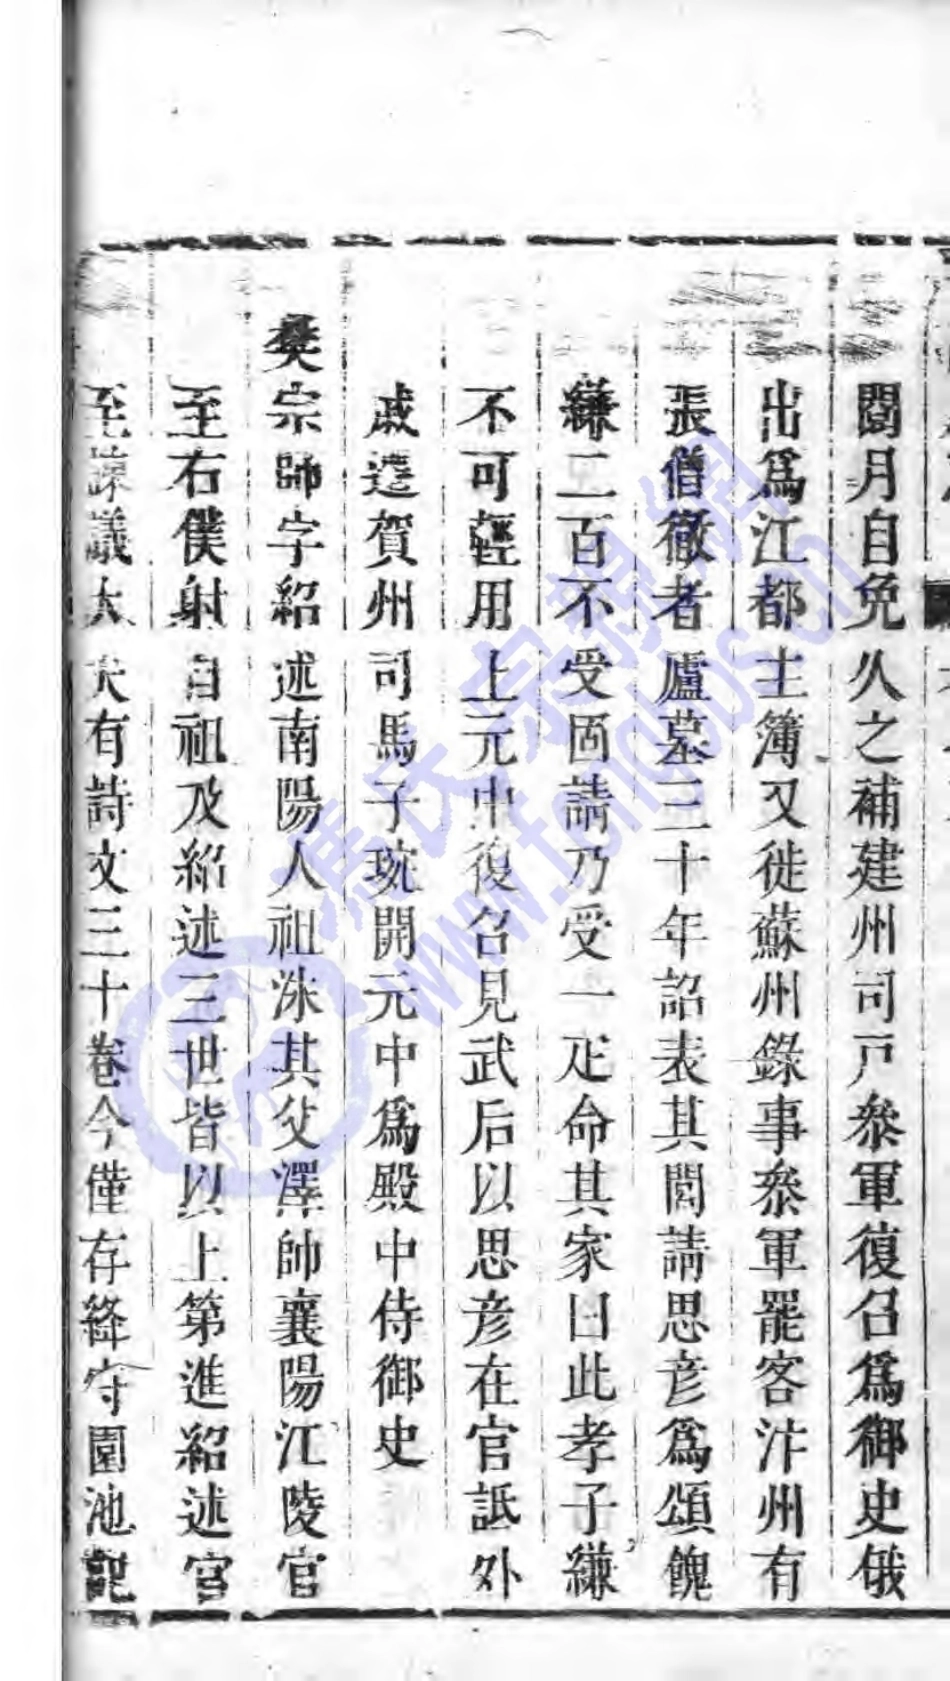 閱月自免久之補建州司戸叅軍復召爲御史俄
出爲江都主簿又徙蘇州錄事叅軍罷客汴州有
張僧徹者廬墓三十年詔表其閭請思彥爲頌餽
縑二百不受固請乃受一疋命其家曰此孝子縑
不可輕用上元中復召見武后以思彥在官詆外
戚遷賀州司馬子琬開元中爲殿中侍御史
樊宗師字紹述南陽人祖泳其父澤帥襄陽江陵官
至右僕射自祖及紹述三世皆以上第進紹述官
至諫議大夫有詩文三十卷今僅存絳守園池記
馮氏宗親網
www.fengbbs.cn